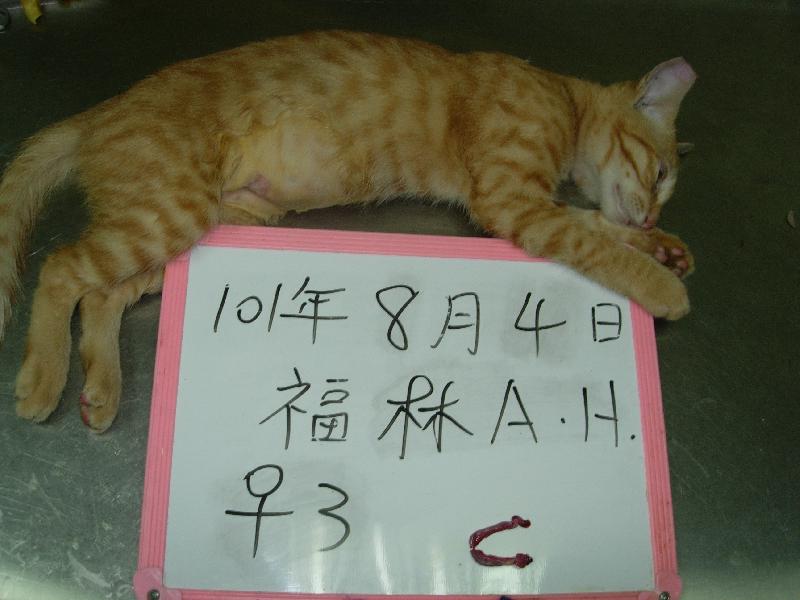 101年8月4日
福林A.H.
♀3